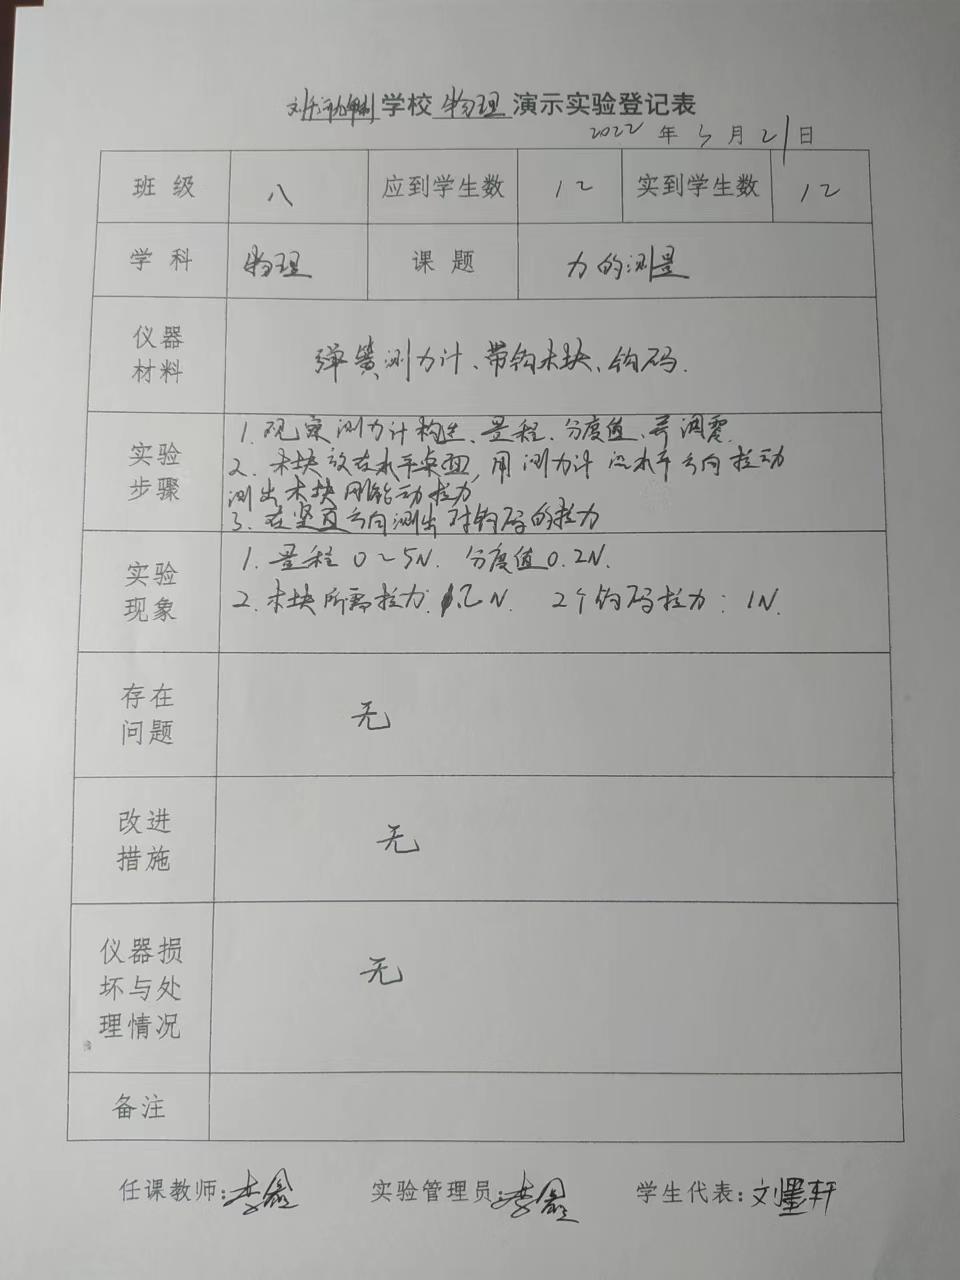 学校 物理 演示实验登记表
2022 年 3 月 21 日
班 级 八 应到学生数 12 实到学生数 12
学 科 物理 课 题 力的测量
仪器
材料
弹簧测力计、带钩木块、钩码.
实验
步骤
1. 观察测力计构造、量程、分度值、并调零.
2. 木块放在水平桌面,用测力计沿水平方向拉动
测出木块刚能动拉力
3. 在竖直方向测出对钩码的拉力
实验
现象
1. 量程 0~5N. 分度值0.2N.
2. 木块所需拉力: N. 2个钩码拉力: 1N.
存在
问题
无
改进
措施
无
仪器损
坏与处
理情况
无
备注
任课教师:李鑫 实验管理员:李鑫 学生代表:刘墨轩